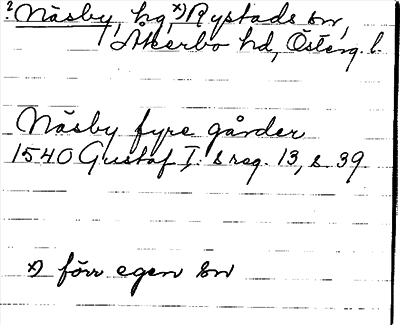 ? Näsby, hg, x) Rystads sn,
Åkerbo hd, Österg. l.
Näsby fyre gårder
1540 Gustaf I:s reg. 13, s 39
x) förr egen sn